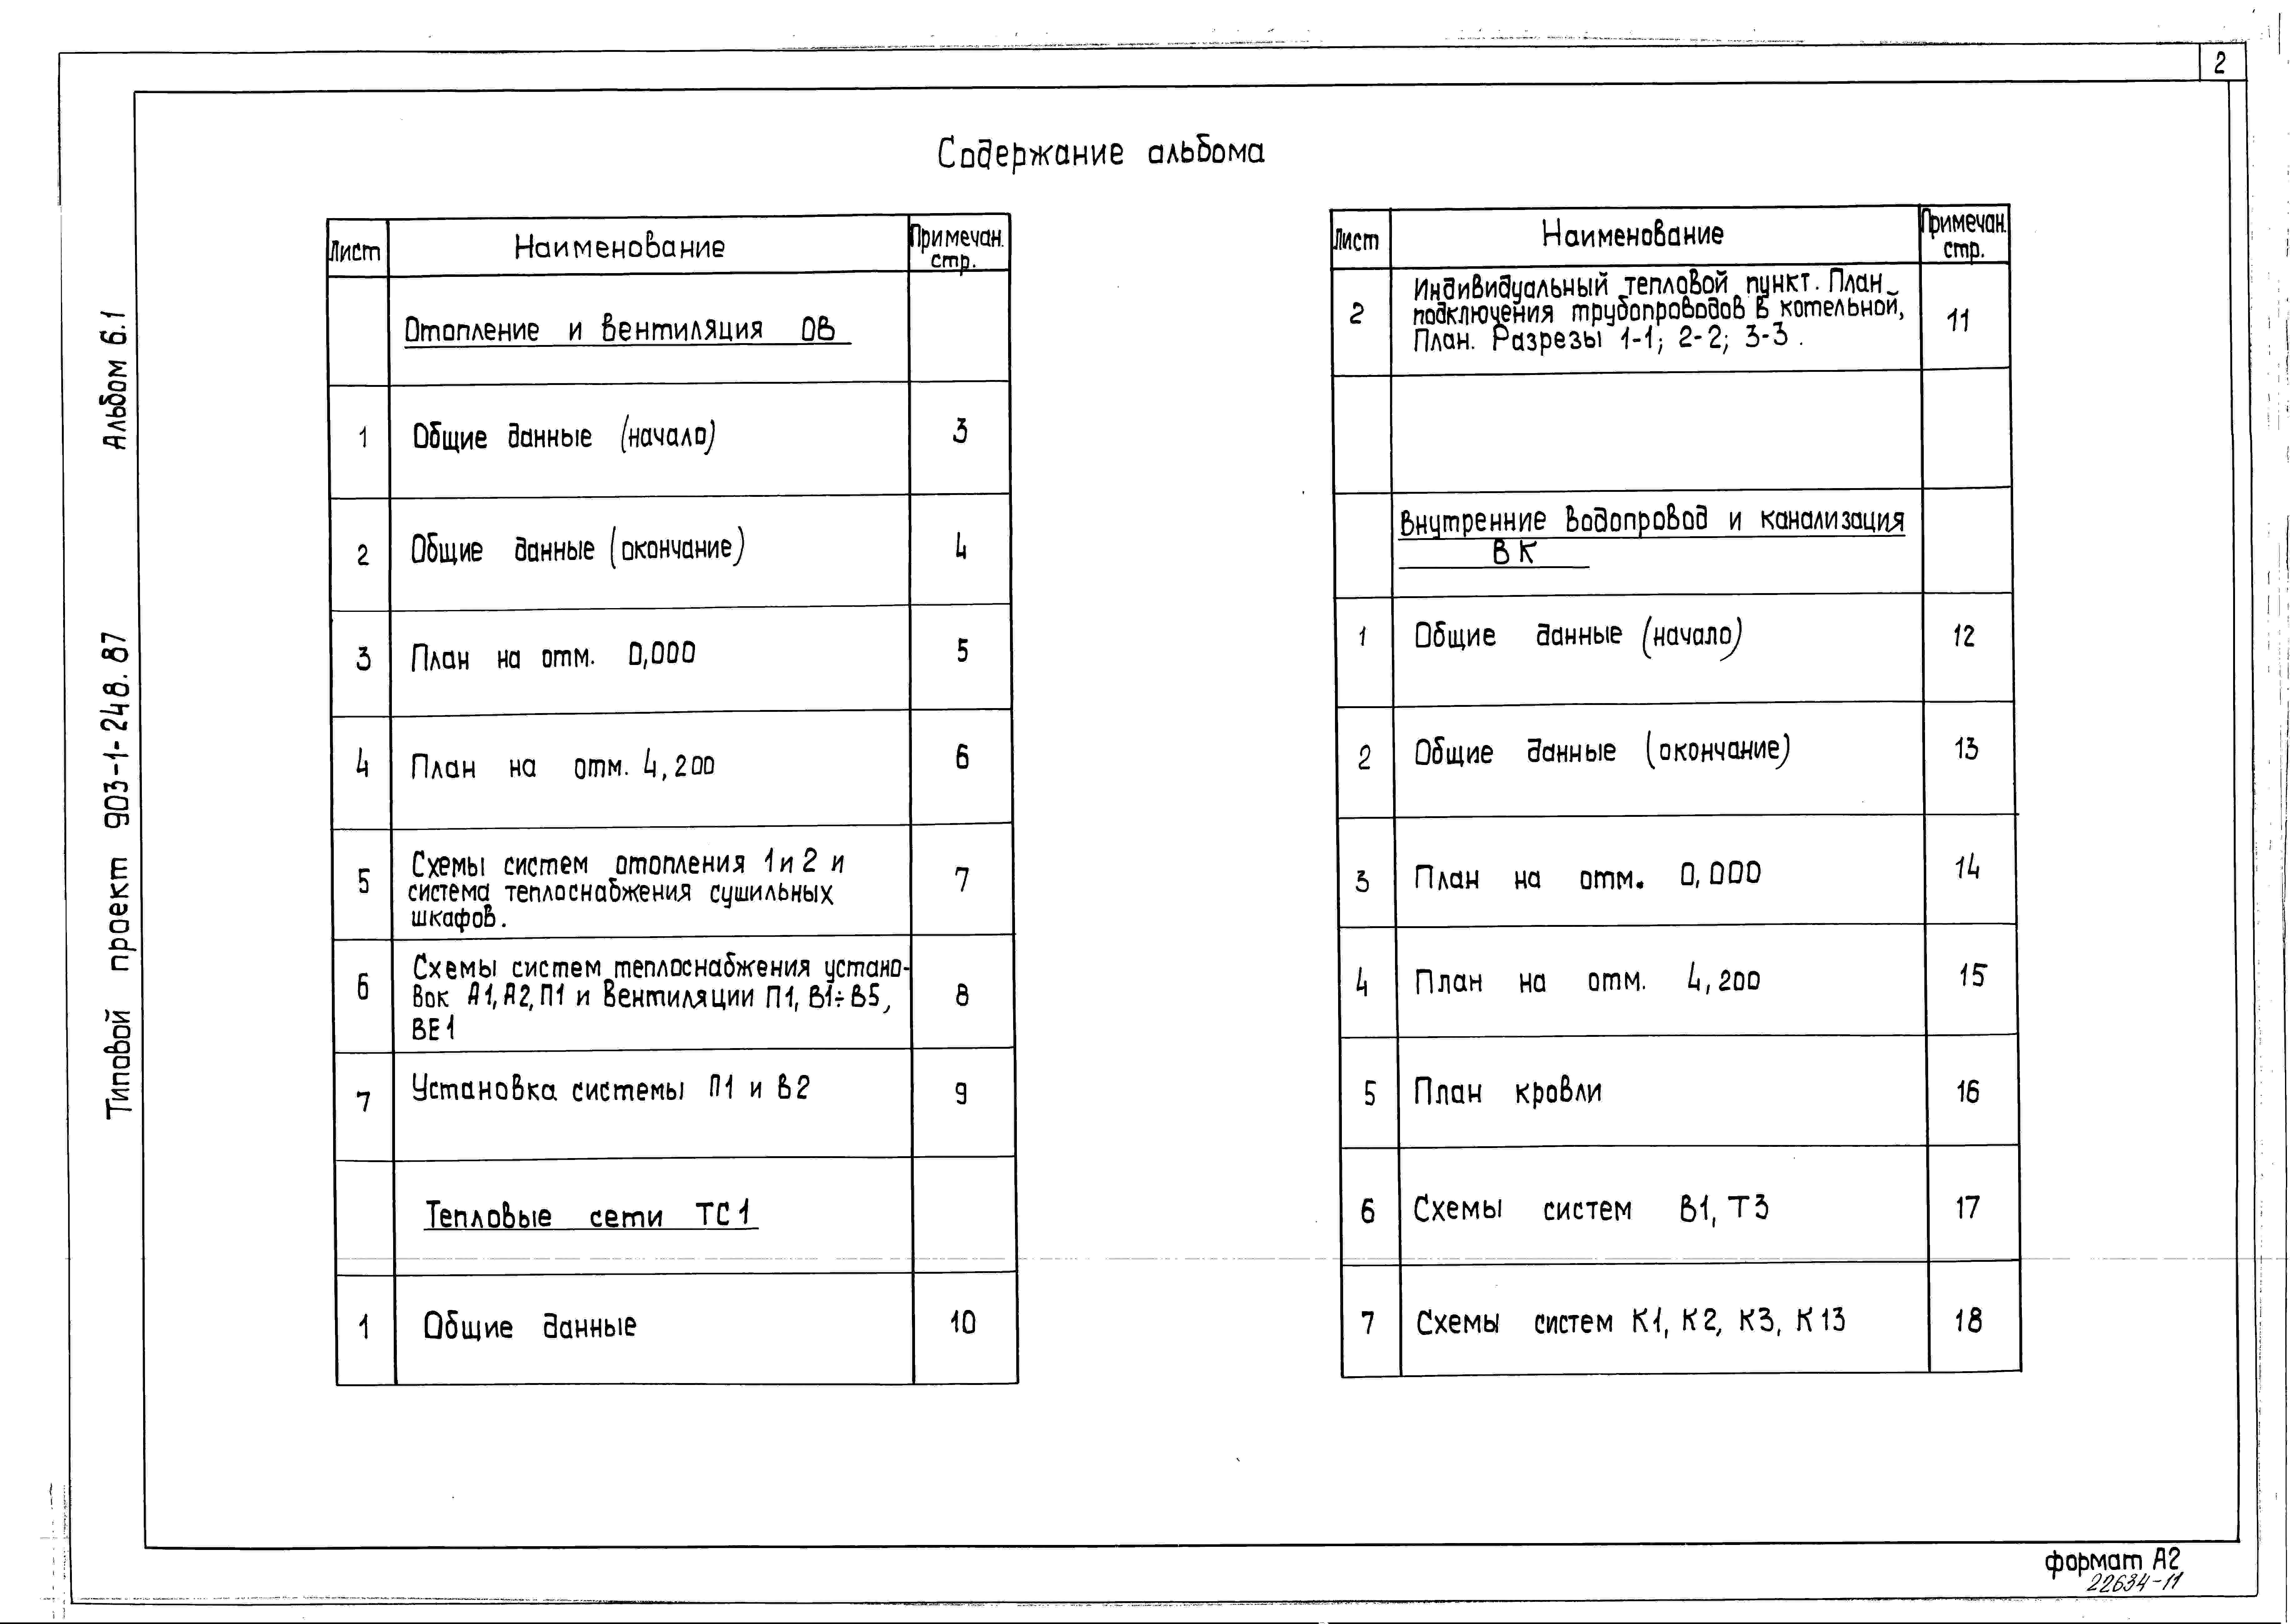 2
Содержание альбома
Альбом 6.1
Типовой проект 903-1-248.87
Лист Наименование Примечан. стр.
Отопление и вентиляция ОВ
1 Общие данные (начало) 3
2 Общие данные (окончание) 4
3 План на отм. 0,000 5
4 План на отм. 4,200 6
5 Схемы систем отопления 1 и 2 и
система теплоснабжения сушильных
шкафов. 7
6 Схемы систем теплоснабжения устано-
вок А1, А2, П1 и вентиляции П1, В1÷В5,
ВЕ1 8
7 Установка системы П1 и В2 9
Тепловые сети ТС1
1 Общие данные 10
Лист Наименование Примечан. стр.
2 Индивидуальный тепловой пункт. План
подключения трубопроводов в котельной,
План. Разрезы 1-1; 2-2; 3-3. 11
Внутренние водопровод и канализация
ВК
1 Общие данные (начало) 12
2 Общие данные (окончание) 13
3 План на отм. 0,000 14
4 План на отм. 4,200 15
5 План кровли 16
6 Схемы систем В1, Т3 17
7 Схемы систем К1, К2, К3, К13 18
формат А2
22634-11